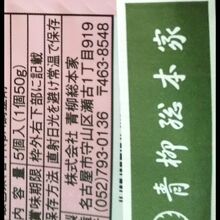 内容量 5個(1個50g)
賞味期限 枠外右下部に記載
保存方法 直射日光を避け常温で保存
株式会社 青柳総本家
名古屋市守山区瀬古1丁目919
(052)793-0136 〒463-8548
青柳総本家